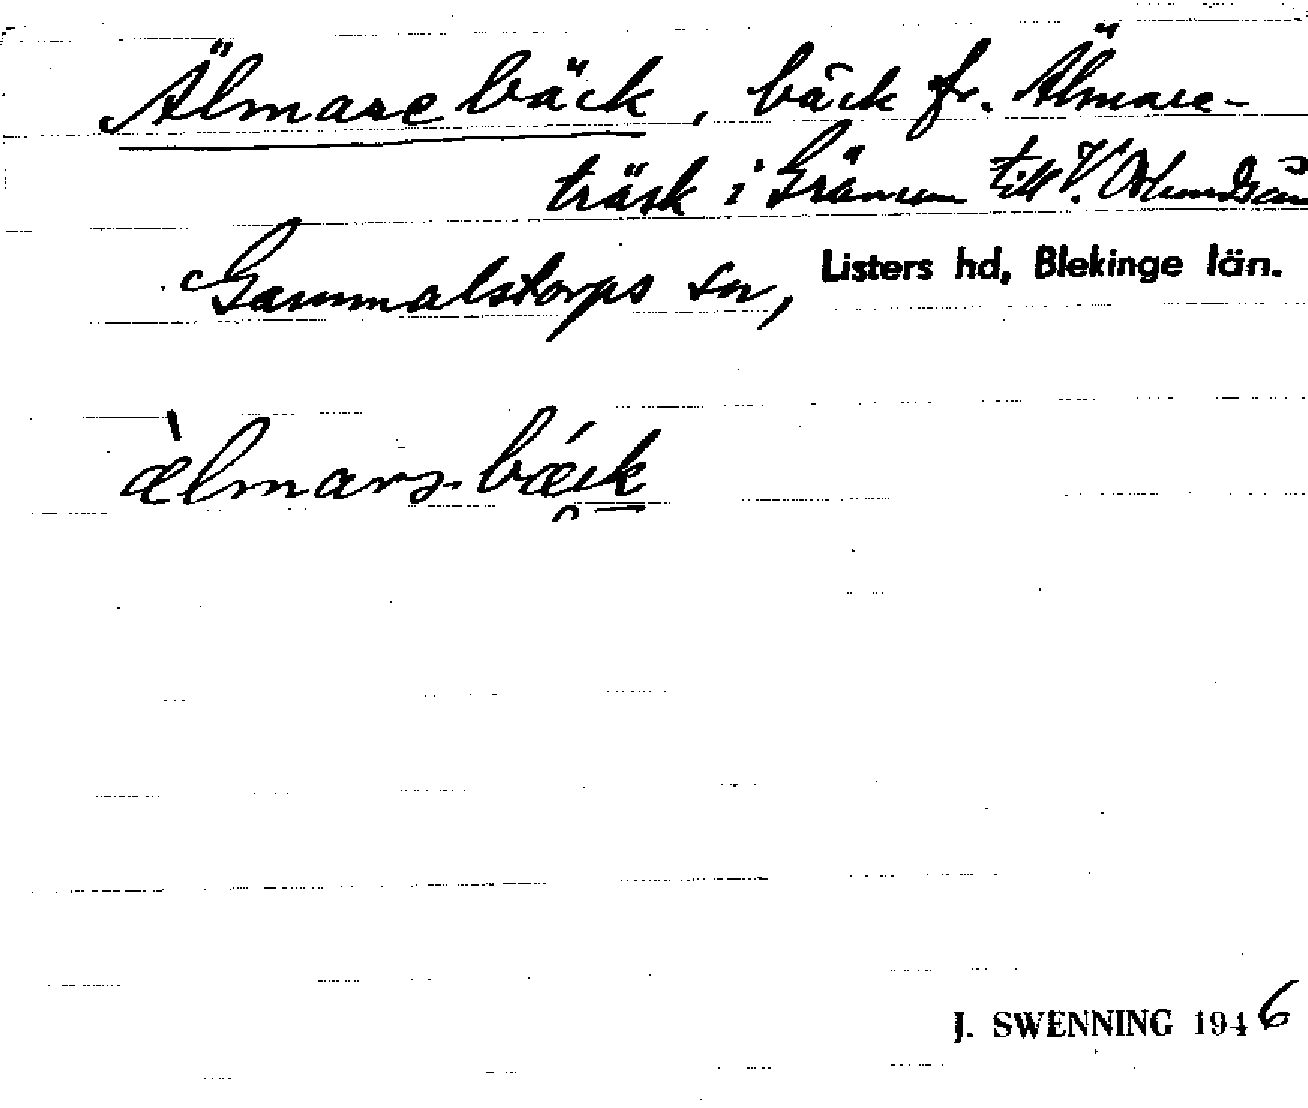 Älmarebäck, bäck fr. Älmare-
träsk i Grämum till V. Orlundsån
Gammalstorps sn, Listers hd, Blekinge län.
æ̀lmarə-bǽck
J. SWENNING 1946